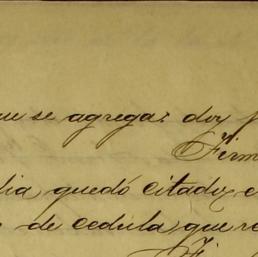 ue se agrega: doy f
Firm
dia quedó citado, c
de cedula que re
Fi